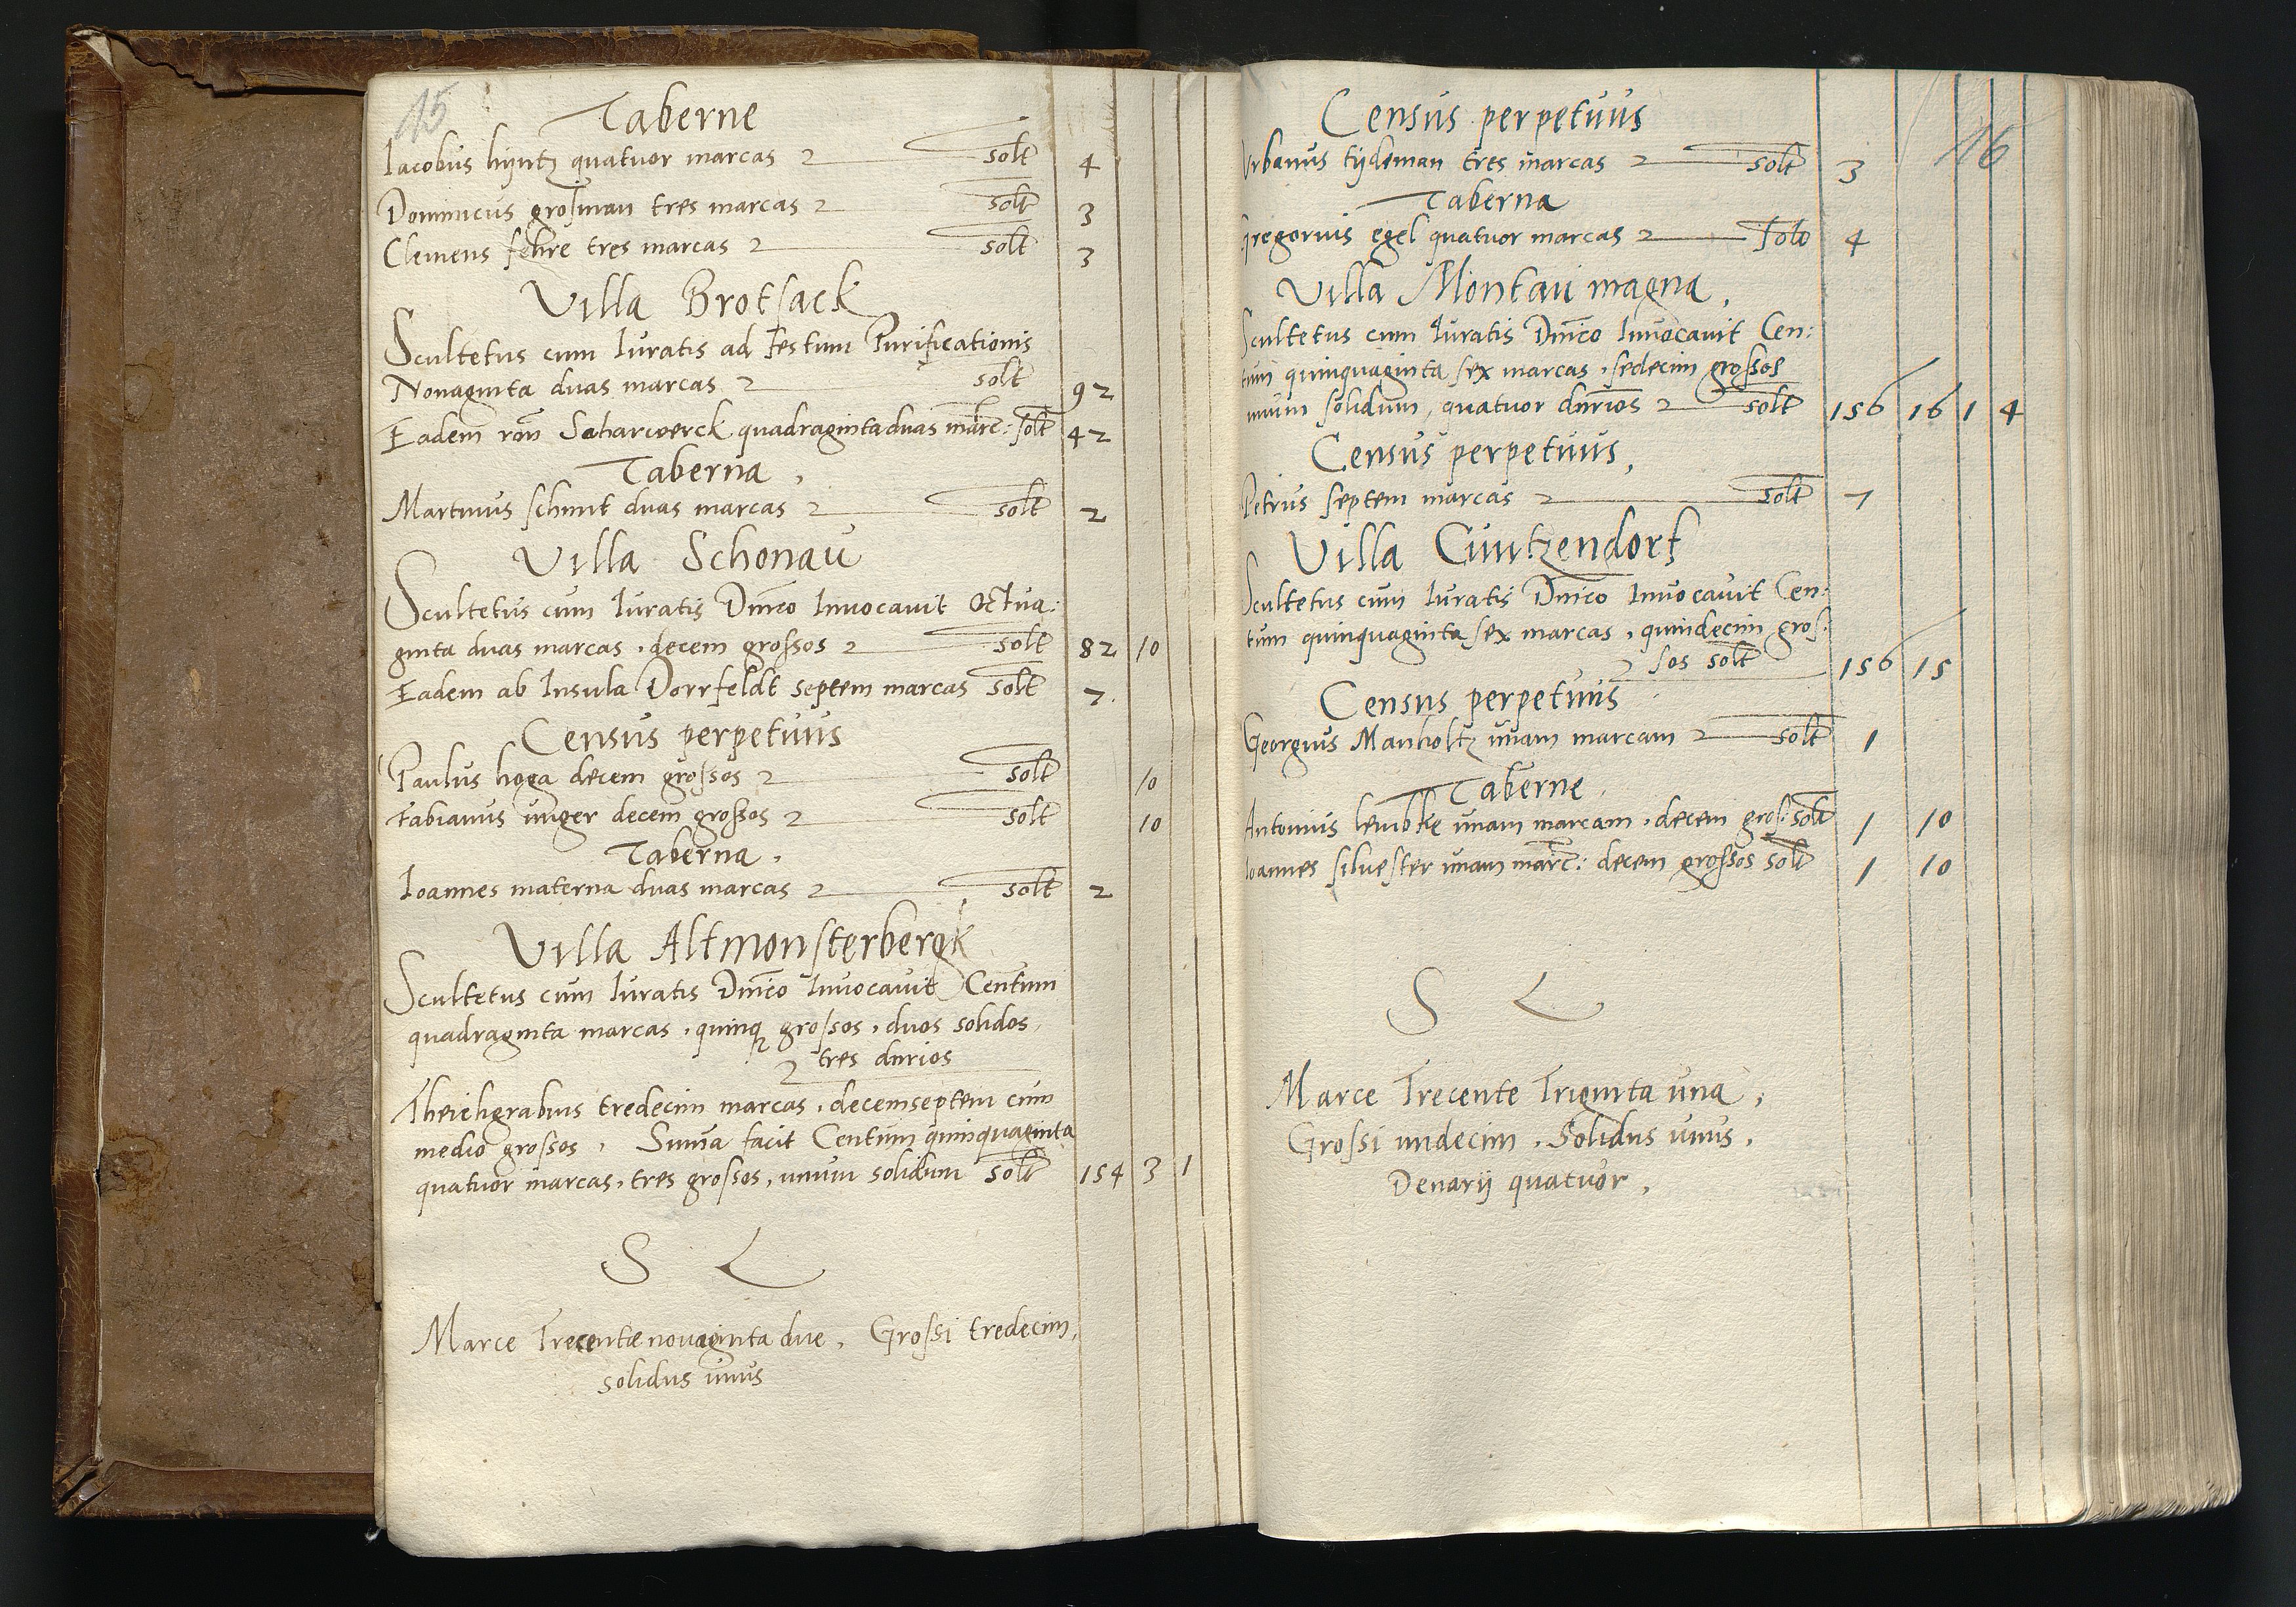 15
Taberne
Iacobus hijntz quatuor marcas solt 4
Dominicus grosman tres marcas solt 3
Clemens fehre tres marcas solt 3
Villa Brotsack
Scultetus cum Iuratis ad festum Purificationis
Nonaginta duas marcas solt 92
Eadem rõn Scharwerck quadraginta duas marc: solt 42
Taberna,
Martinus schmit duas marcas solt 2
Villa Schonau
Scultetus cum Iuratis Dnico Inuocauit Octua:
ginta duas marcas, decem grossos solt 82 10
Eadem ab Insula Dorrfeldt septem marcas solt 7
Census perpetuus
Paulus hoga decem grossos solt 10
Fabianus unger decem grossos solt 10
Taberna,
Ioannes materna duas marcas solt 2
Villa Altmonsterbergk
Scultetus cum Iuratis Dnico Inuocauit Centum
quadraginta marcas, quinq grossos, duos solidos,
tres dnrios
Theichgrabius tredecim marcas, decemseptem cum
medio grossos, Suma facit Centum quinquaginta
quatuor marcas, tres grossos, unum solidum solt 154 3 1
S L
Marce Trecente novaginta due, Grossi tredecim,
solidus unus
16
Census perpetuus
Urbanus tijdeman tres marcas solt 3
Taberna
gregorius egel quatuor marcas solt 4
Villa Montau magna,
Scultetus cum Iuratis Dnico Inuocauit Cen:
tum quinquaginta sex marcas, sedecim grossos
unum solidum, quatuor dnrios solt 156 16 1 4
Census perpetuus,
Petrus septem marcas solt 7
Villa Cuntzendorf
Scultetus cum Iuratis Dnico Inuocauit Cen:
tum quinquaginta sex marcas, quindecim gros:
sos solt 156 15
Census perpetuus
Georgius Manholtz unam marcam solt 1
Taberne
Antonius lembke unam marcam, decem gros: solt 1 10
Ioannes siluester unam marc: decem grossos solt 1 10
S L
Marce Trecente Triginta una,
Grossi undecim, Solidus unus,
Denarij quatuor,